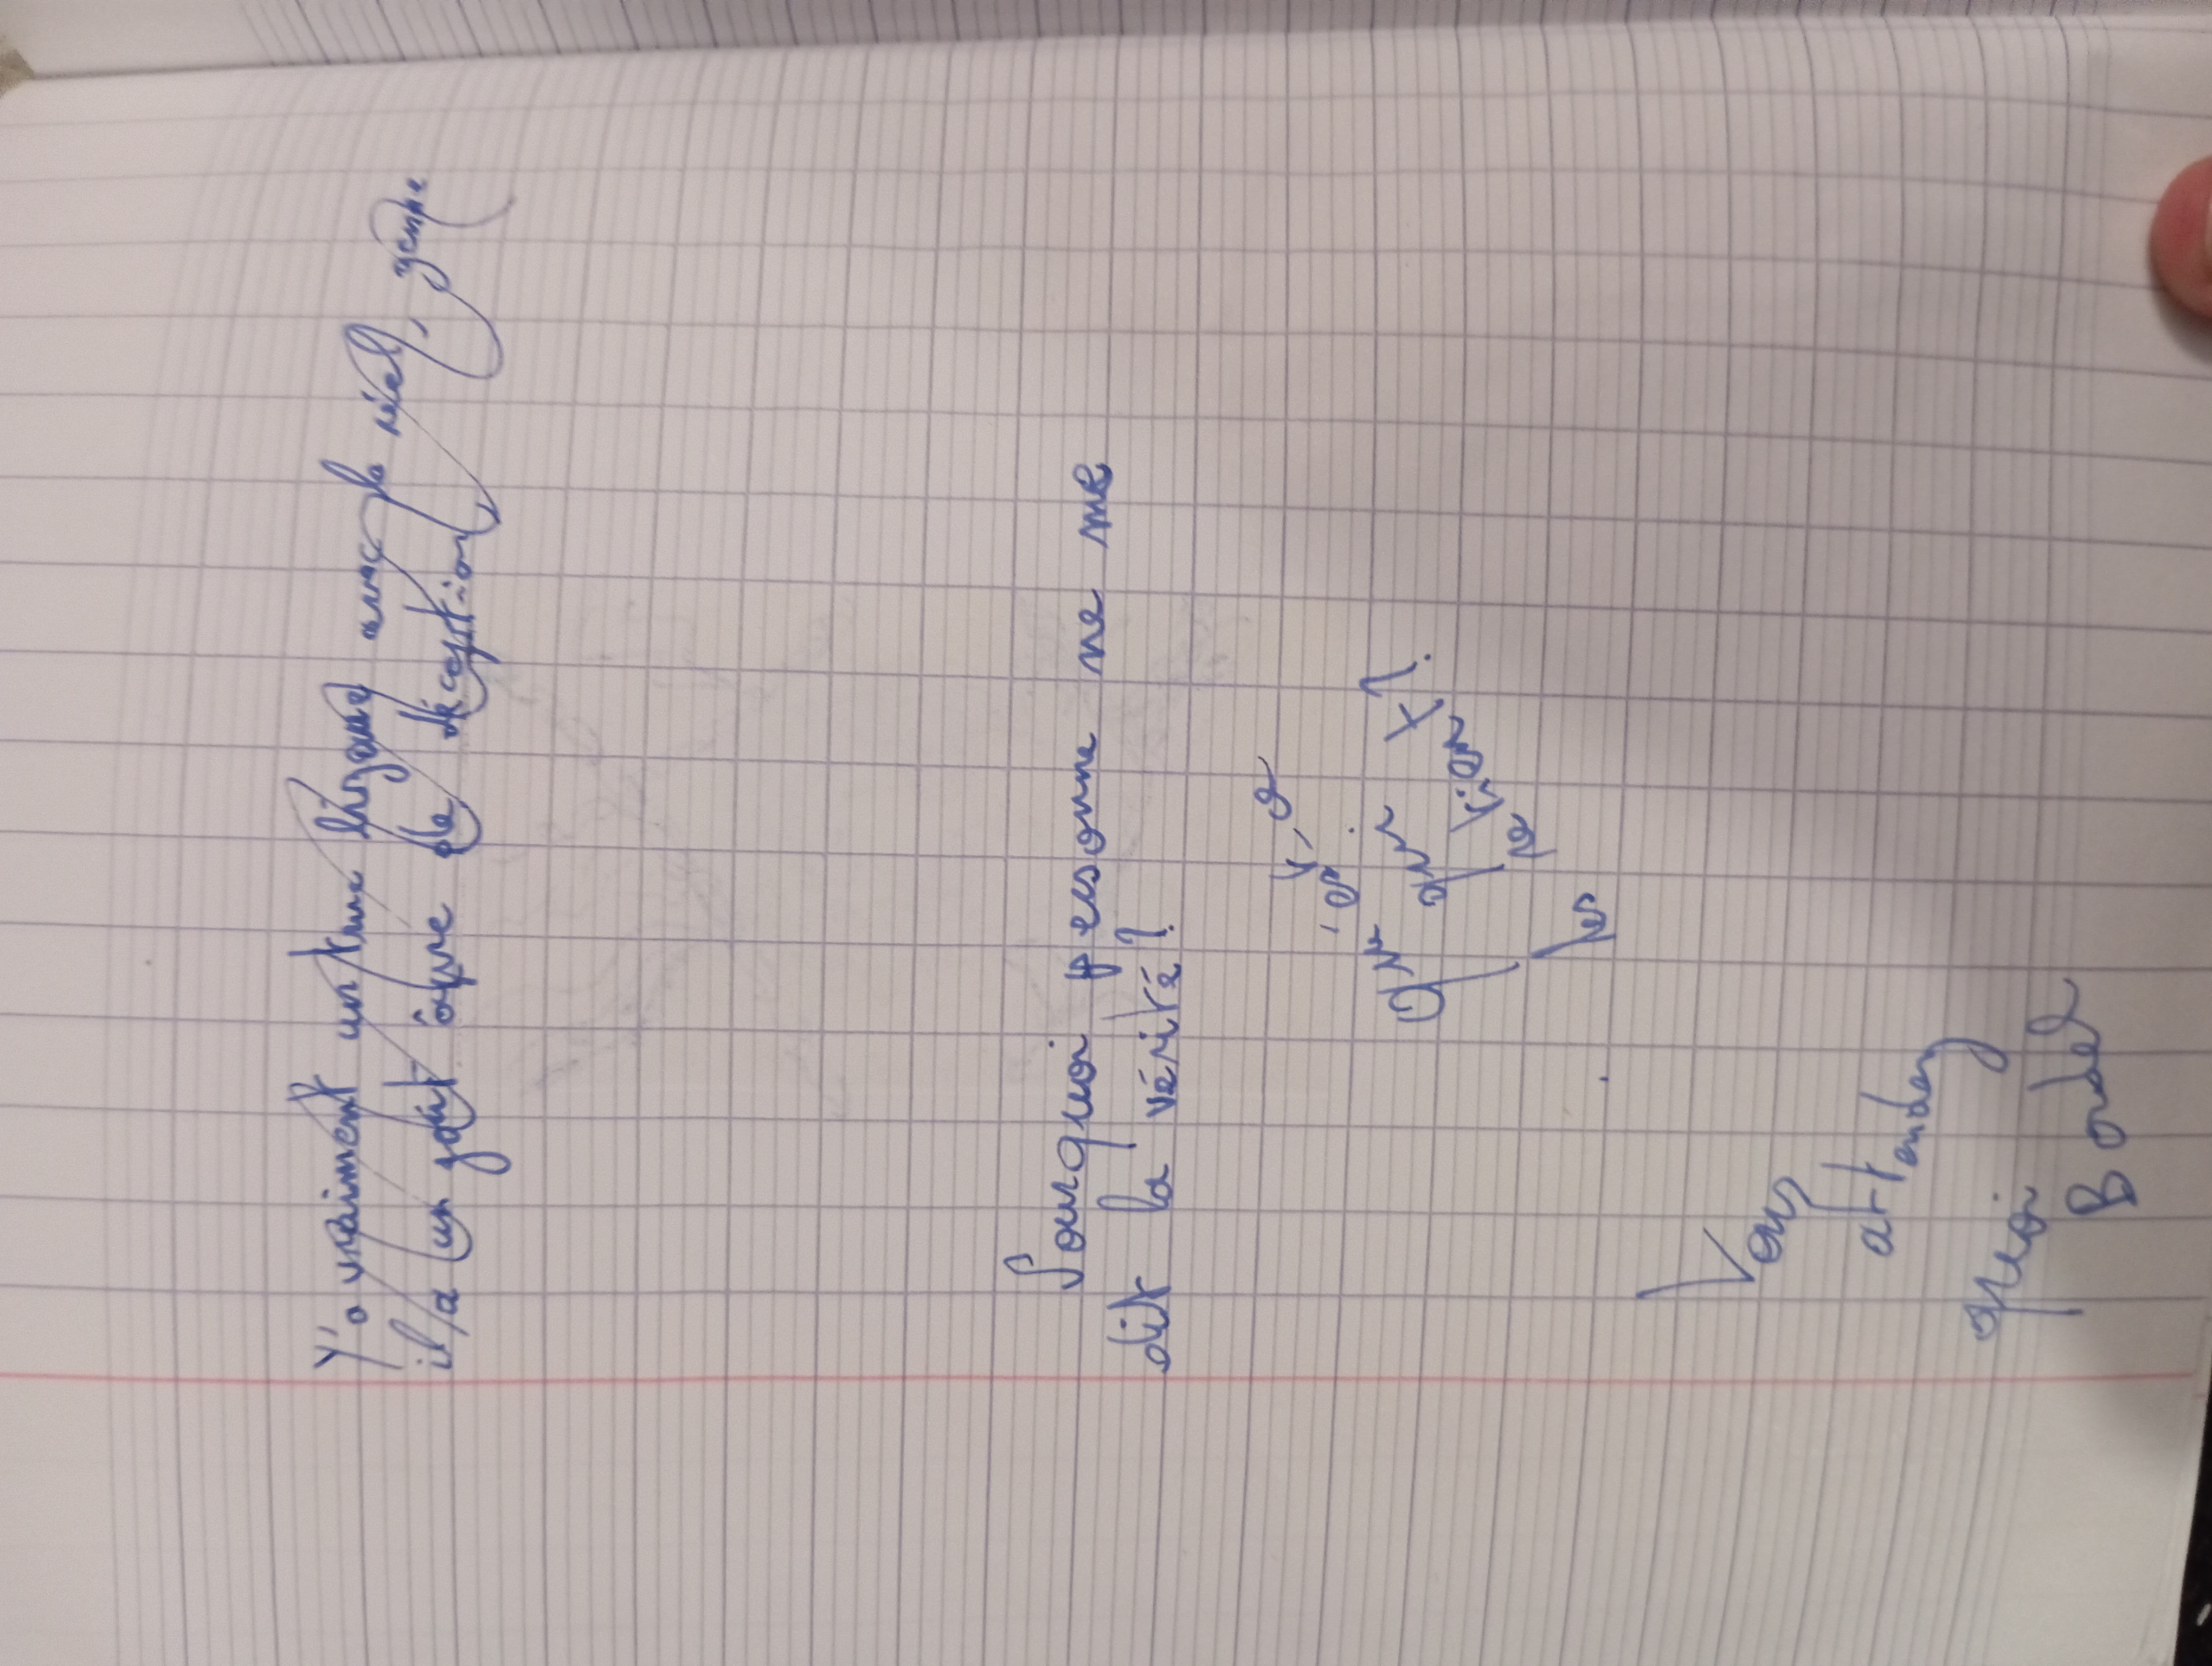 Y'a vraiment un truc bizarre avec le réel, genre
il a un goût âpre de déception
Pourquoi personne ne me
dit la vérité?
Qu'est-ce
qui
les retient?
Vous
attendez
quoi
Bordel